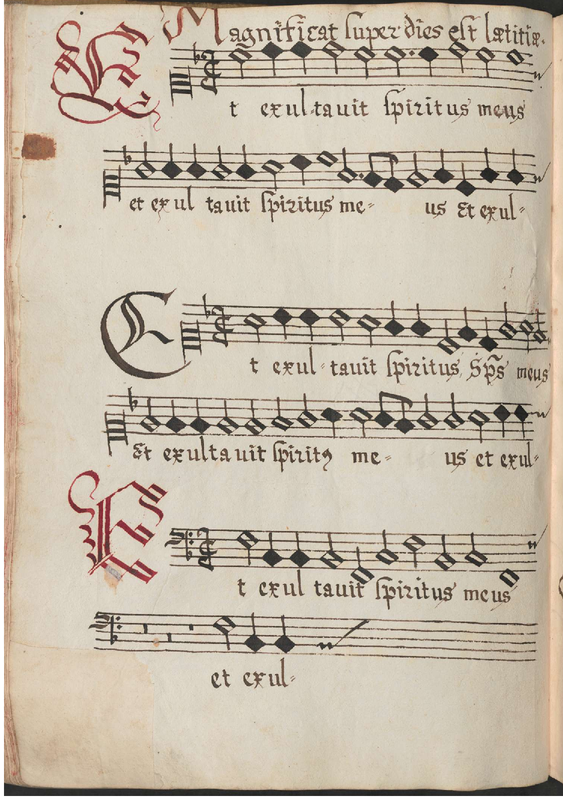 Magnificat super dies est lætitiæ.
Et exultauit spiritus meus
et exul tauit spiritus me= us Et exul=
Et exul=tauit spiritus Sps meus
Et exultauit spiritꝰ me= us et exul=
Et exul tauit spiritus meus
et exul=